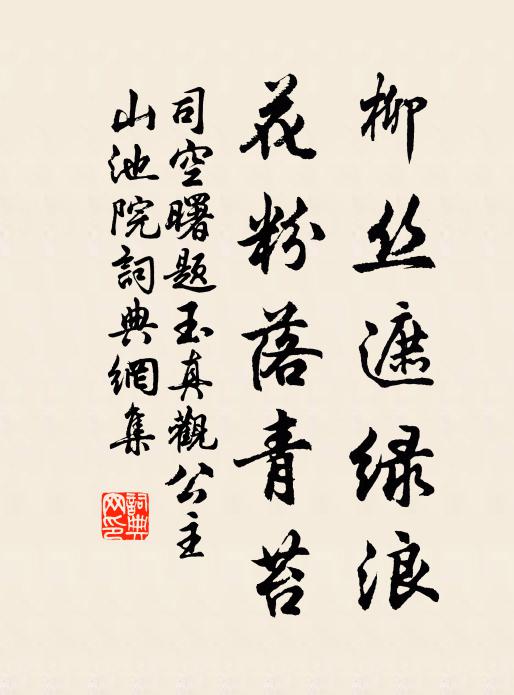 柳丝遮绿浪
花粉落青苔
司空曙题玉真觀公主
山池院詞典網集
詞典网印